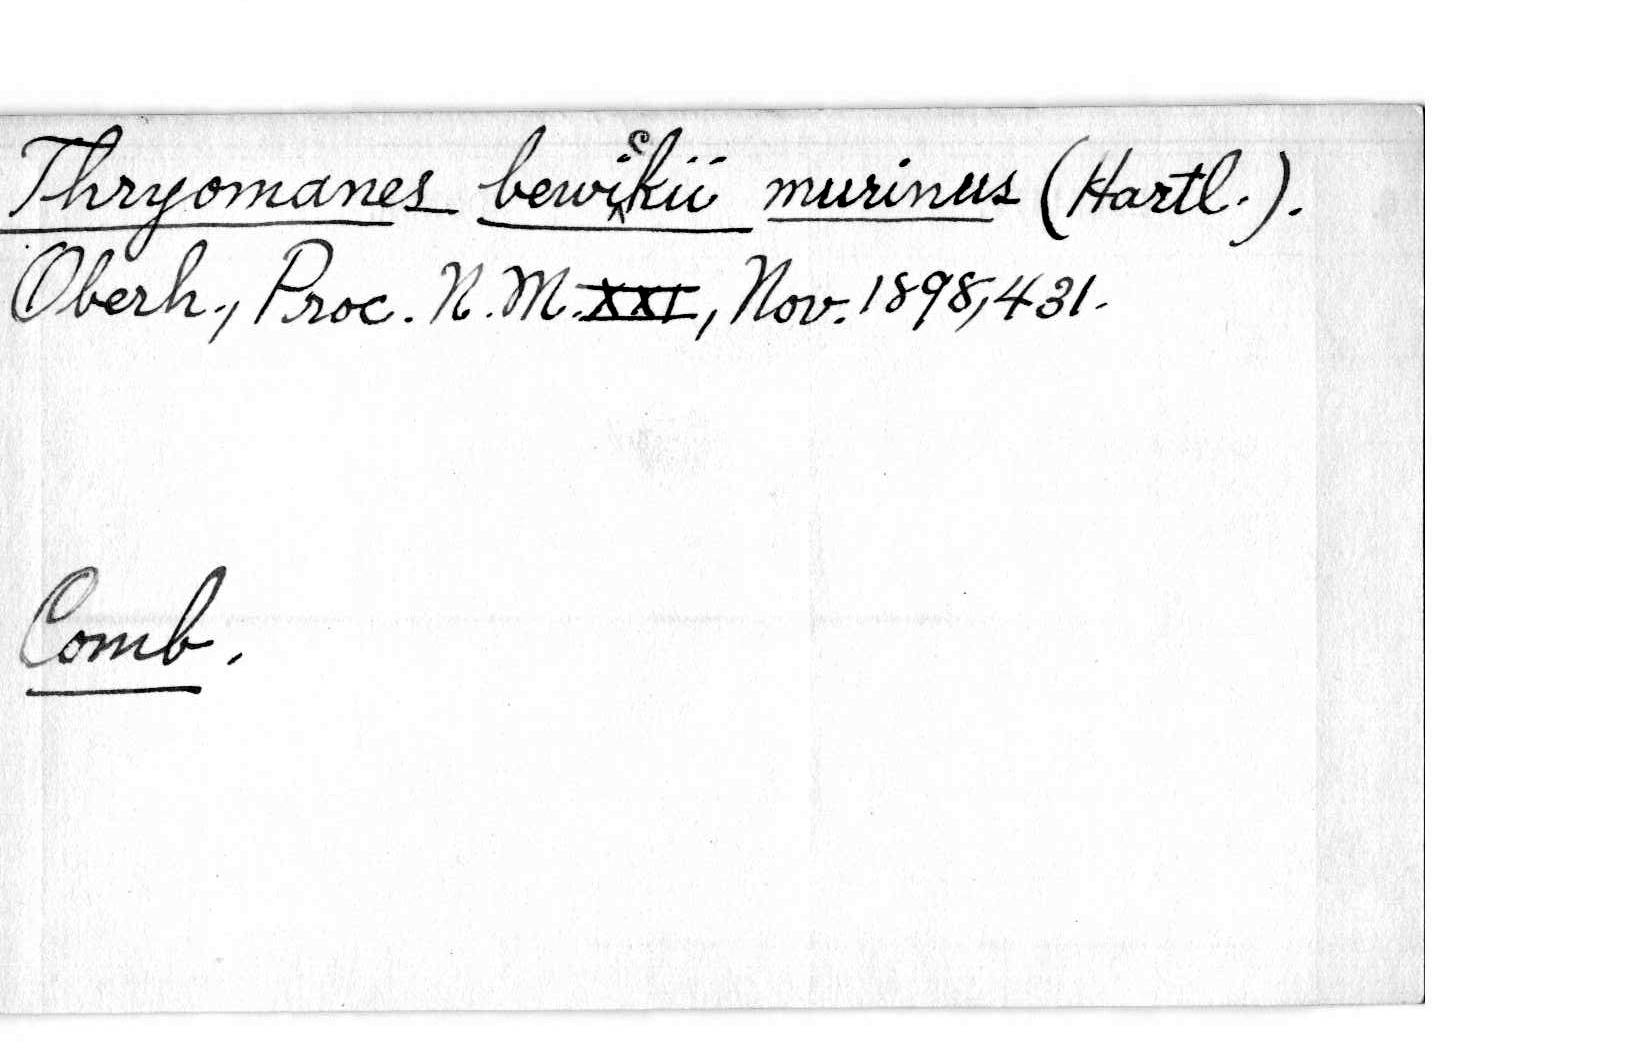 Thryomanes bewickii murinus (Hartl.).
Oberh., Proc. N. M. XXI, Nov. 1898, 431.
Comb.